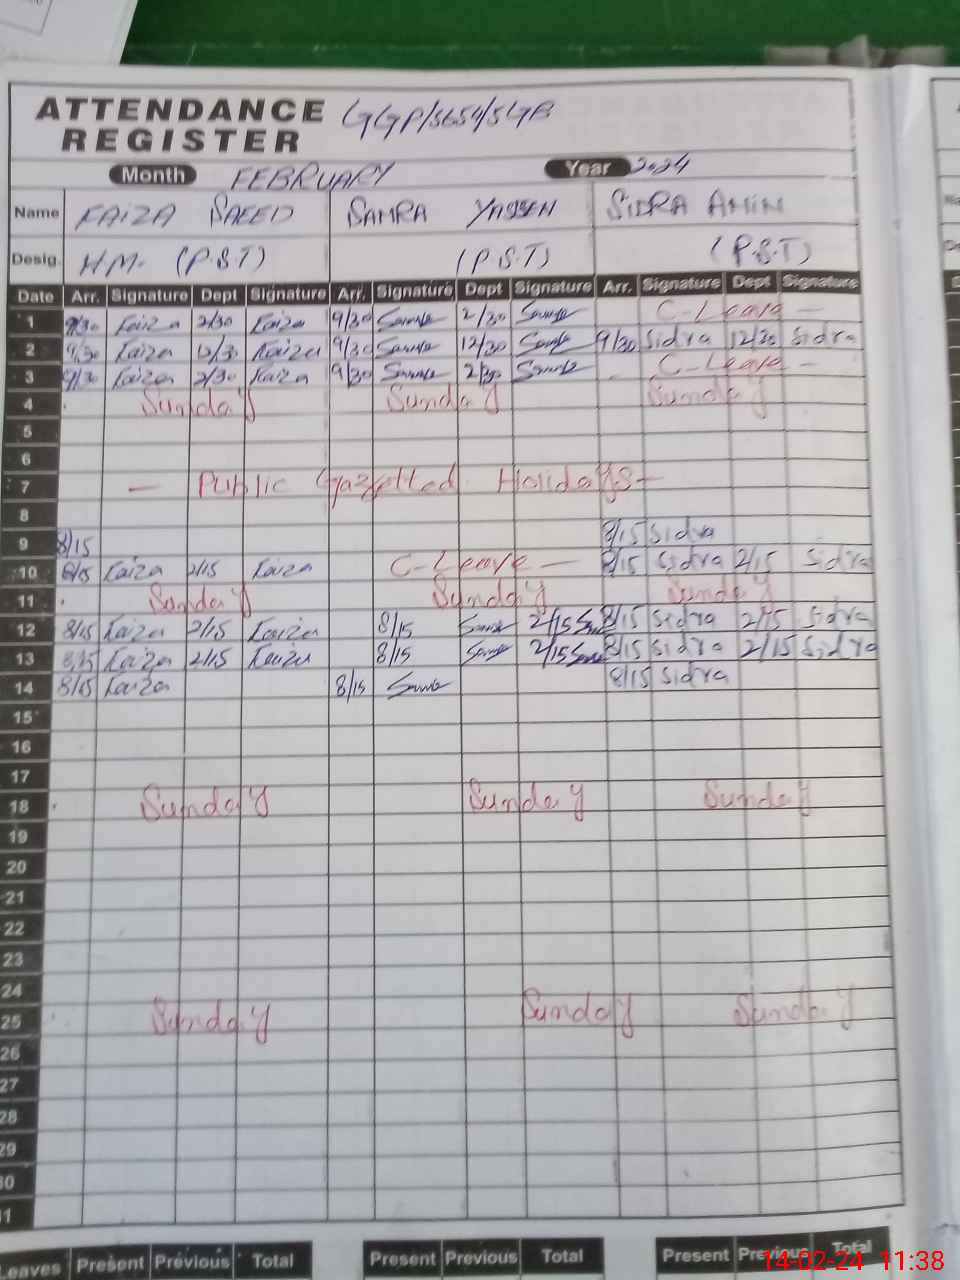 ATTENDANCE REGISTER GGP/5654/SGB
Month FEBRUARY Year 2024
Name FAIZA SAEED SAMRA YASSEN SIDRA AMIN
Desig. H.M. (P.S.T) (P.S.T) (P.S.T)
Date Arr. Signature Dept Signature Arr. Signature Dept Signature Arr. Signature Dept Signature
1 9/30 Faiza 2/30 Faiza 9/30 Samra 2/30 Samra C-Leave -
2 9/30 Faiza 12/30 Faiza 9/30 Samra 12/30 Samra 9/30 Sidra 12/30 Sidra
3 9/30 Faiza 2/30 Faiza 9/30 Samra 2/30 Samra - C-Leave -
4 Sunday Sunday Sunday
5
6
7 - Public Gazetted Holidays -
8
9 8/15 8/15 Sidra
10 8/15 Faiza 2/15 Faiza C-Leave - 8/15 Sidra 2/15 Sidra
11 Sunday Sunday Sunday
12 8/15 Faiza 2/15 Faiza 8/15 Samra 2/15 Samra 8/15 Sidra 2/15 Sidra
13 8/15 Faiza 2/15 Faiza 8/15 Samra 2/15 Samra 8/15 Sidra 2/15 Sidra
14 8/15 Faiza 8/15 Samra 8/15 Sidra
15
16
17
18 Sunday Sunday Sunday
19
20
21
22
23
24
25 Sunday Sunday Sunday
26
27
28
29
30
31
Leaves Present Previous Total Present Previous Total Present Previous Total
14-02-24 11:38